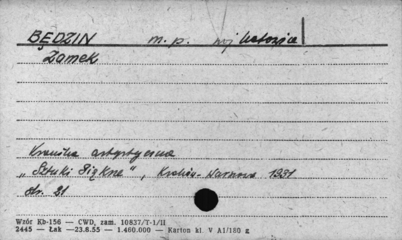 BĘDZIN m. p. wj Katowice
Zamek
Kronika artystyczna
"Sztuki Piękne", Kraków-Warszawa 1931
str. 21
Wzór Kb-156 — CWD, zam. 10837/T-1/II
2445 — Łak —23.8.55 — 1.460.000 — Karton kl. V A1/180 g